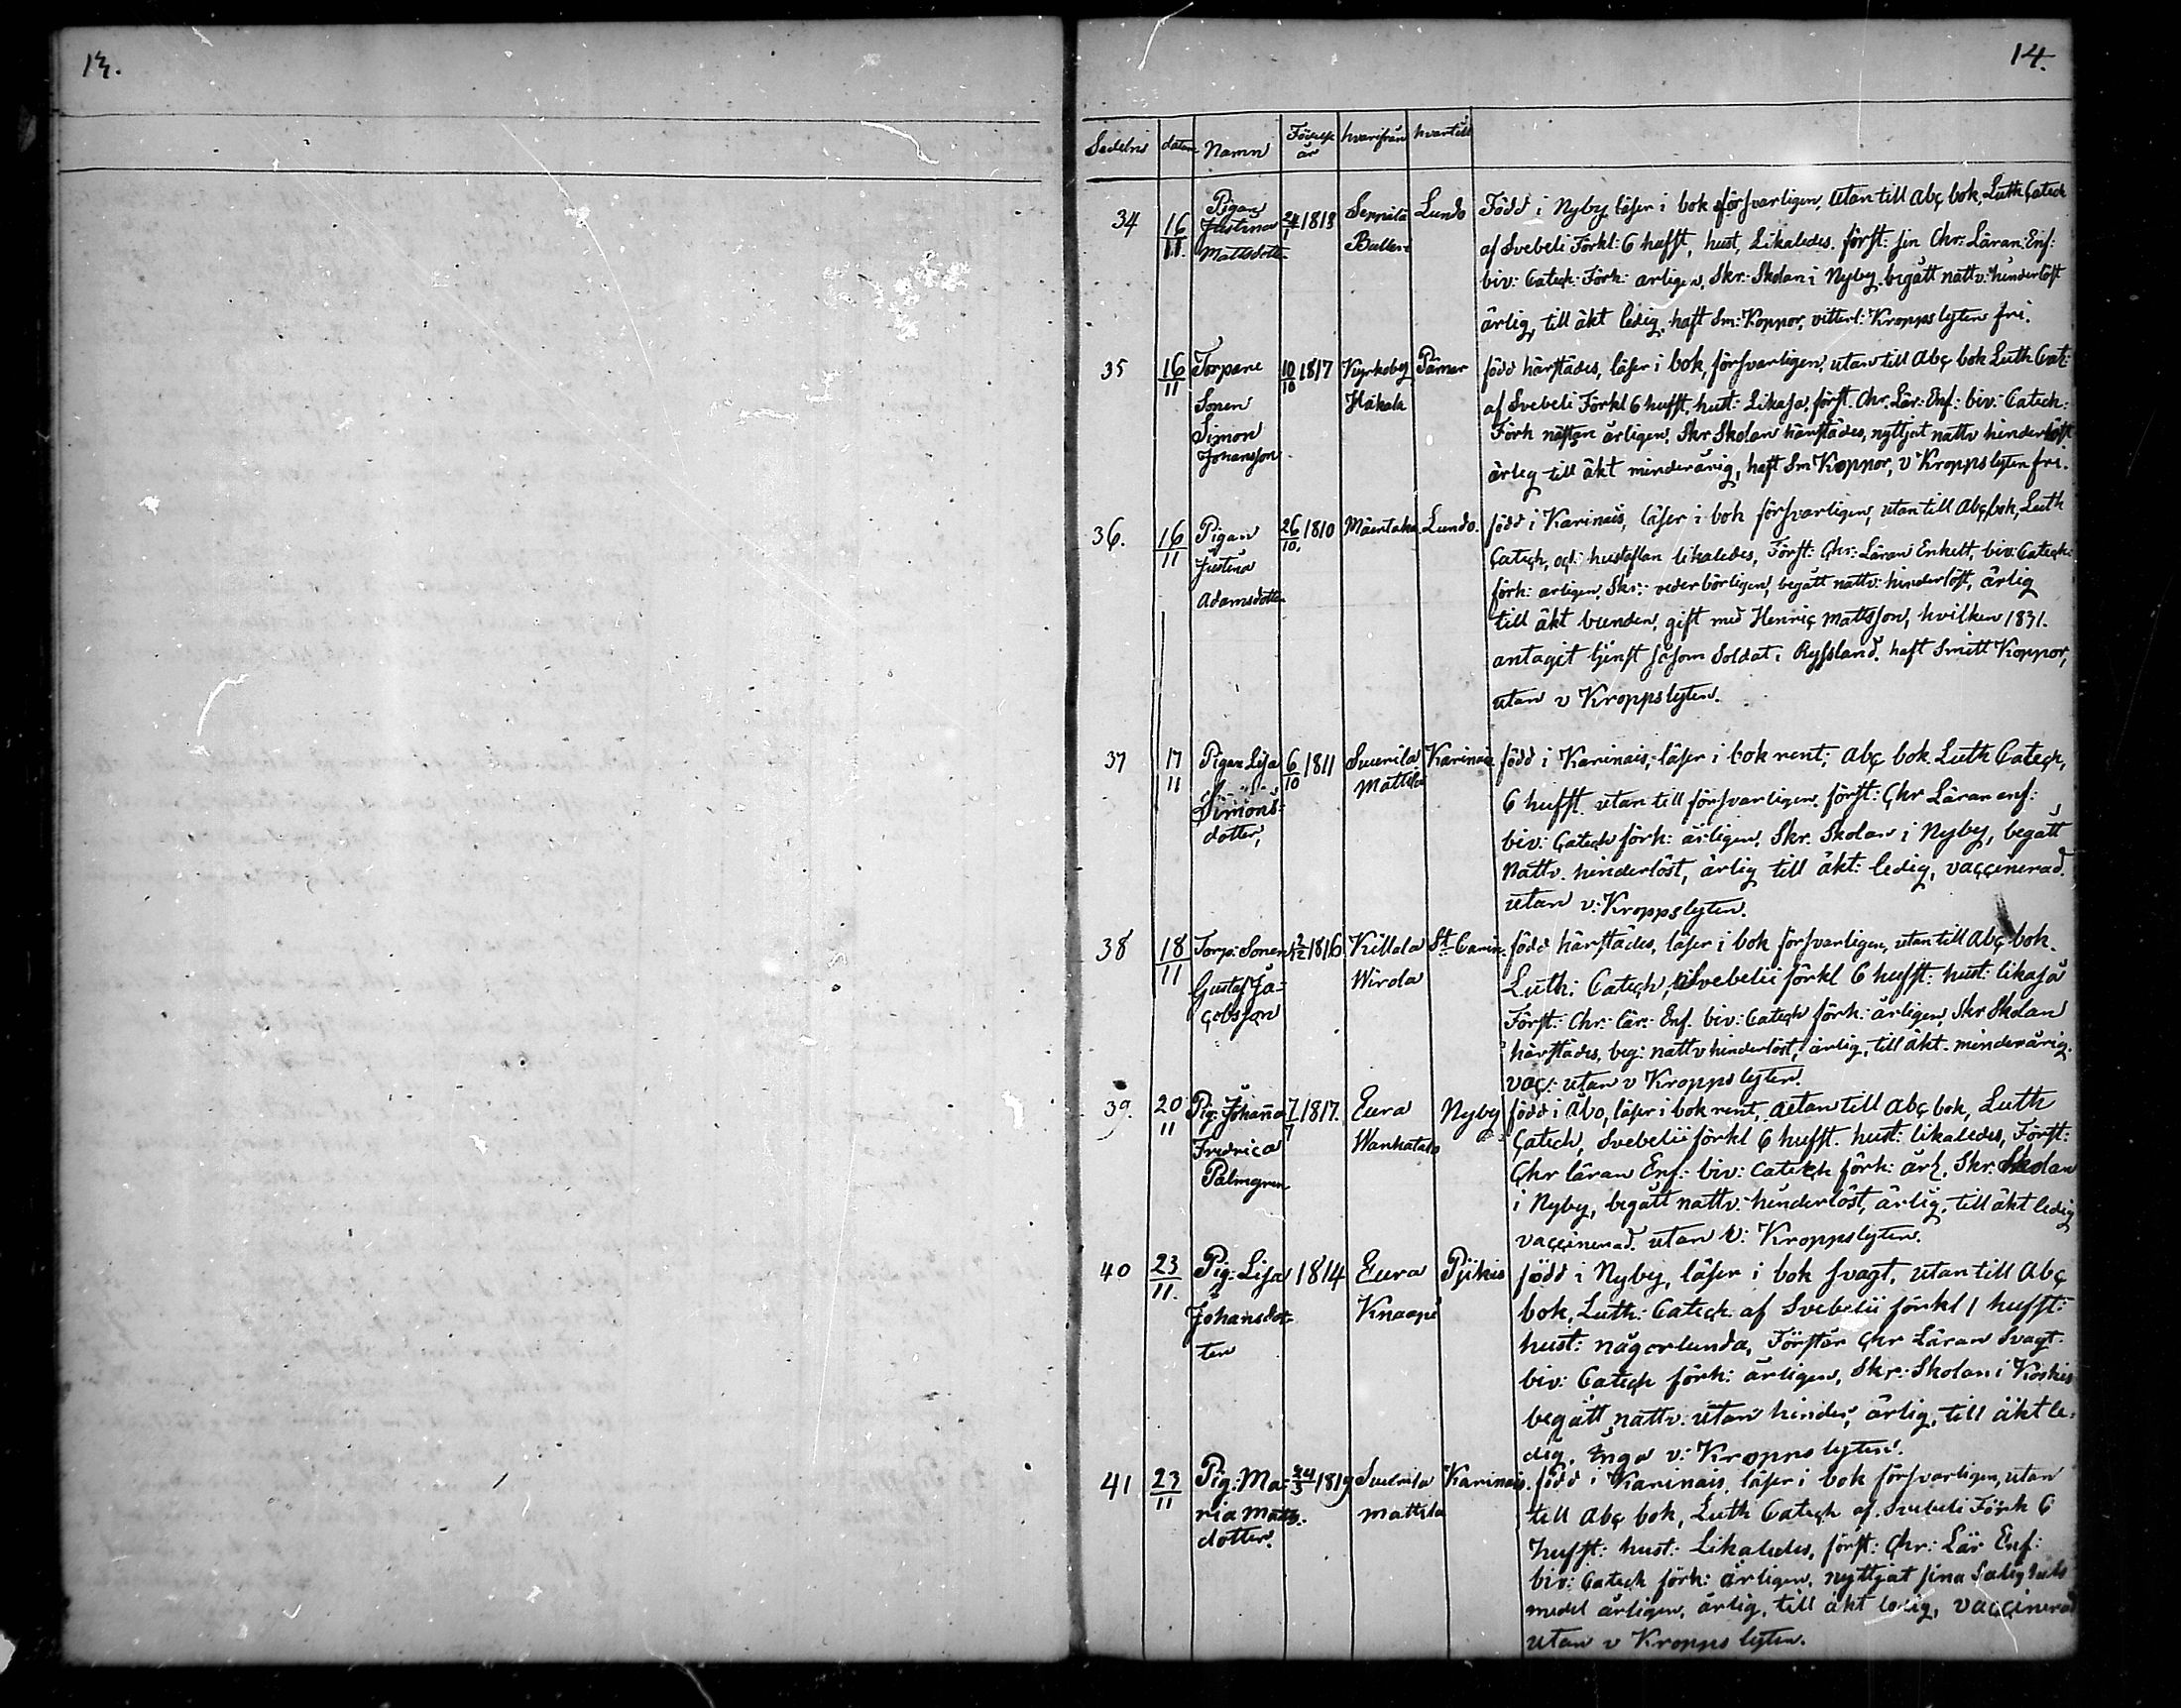 13.
14.
Sedelns daten Namn Födelse år hvarifrån hvartill
34 16/11. Pigan Justina Mattsdotter 24/1 1813 Lundo Född i Nyby, läser i bok försvarligen, utan till Abc bok, Luth Catech
af Svebeli Förkl: 6 hufft, hust, Likaledes. först: sin Chr: Läran: Enf:
biv: Catech: Förh: arligen, Skr: Skolan i Nyby, begått nattv: hinderlöst
ärlig, till äkt ledig, haft Sm: Koppor, vitterl: Kropps lyten fri.
35 16/11 Torpare Sonen Simon Johansson 10/10 1817 Kyrkoby Håkala Pämar född härstädes, läser i bok, försvarligen, utan till Abc bok Luth Cat:
af Svebeli Förkl 6 hufft, hust: Likaså, först. Chr. Lär: Enf: biv: Catech:
Förh nästan årligen, Skr Skolan härstädes, nyttjat nattv hinderlöst
ärlig till äkt minderårig, haft Sm Koppor, v Kropps lyten fri.
36. 16/11 Pigan Justina Adamsdotter 26/10. 1810 Mäentaka Lundo. född i Karinais, läser i bok försvarligen, utan till Abc bok, Luth
Catech, och hustaflan likaledes, Först: Chr: Läran Enkelt, biv: Catech:
förh: arligen, Skr: vederbörligen, begått nattv: hinderlöst, ärlig
till äkt bunden, gift med Henric Mattsson, hvilken 1831.
antagit tjenst såsom Soldat i Ryssland. haft Smitt Koppor,
utan v Kroppslyten.
37 17/11 Pigan Lisa Simons: dotter, 6/10 1811 Suurila Mattila Karinais född i Karinais, läser i bok rent, Abc bok Luth Catech,
6 hufft. utan till försvarligen, först: Chr Läran enf:
biv: Catech förh: årligen, Skr. Skolan i Nyby, begått
Nattv. hinderlöst, ärlig till äkt: ledig, vaccinerad.
utan v: Kroppslyten.
38 18/11 Torp: Sonen Gustaf Jacobsson 1816 Killala Wirola St Carin. född härstädes, läser i bok försvarligen, utan till Abc bok.
Luth: Catech, Svebelii förkl 6 hufft: hust: likaså
Först: Chr: Lär: Enf. biv: Catech förh: årligen, Skr Skolan
härstädes, beg: nattv hinderlöst, ärlig, till äkt. minderårig.
vac: utan v Kropps lyten.
39. 20/11 Pig: Johanna Fredrica Palmgren 7/7 1817. Eura Wanhatalo Nyby född i Åbo, läser i bok rent, utan till Abc bok, Luth
Catech, Svebelii förkl 6 hufft. hust: likaledes, Först:
Chr läran Enf: biv: Catech förh: årl. Skr. Skolan
i Nyby, begått nattv: hinderlöst, ärlig, till äkt ledig
vaccinerad. utan v: Kroppslyten.
40 23/11. Pig: Lisa Johansdotter 1814 Eura Knaapi Pjikis född i Nyby, läser i bok svagt, utan till Abc
bok, Luth: Catech af Svebelii förkl 1 hufft:
hust: någorlunda, Förstår Chr Läran Svagt
biv: Catech förh: årligen, Skr: Skolan i Koskis
begått nattv. utan hinder, ärlig, till äkt le-
dig. Inga v: Kropps lyten.
41 23/11 Pig: Maria Matts. dotter. 24/3 1819 Suurila Mattila Karinais. född i Karinais, läser i bok försvarligen, utan
till Abc bok, Luth Catech af Svebeli Förk 6
hufft: hust: Likaledes, först: Chr: Lär Enf:
biv: Catech förh: årligen, nyttjat sina Salighets
medel årligen, ärlig, till äkt ledig, vaccinerad
utan v Kropps lyten.